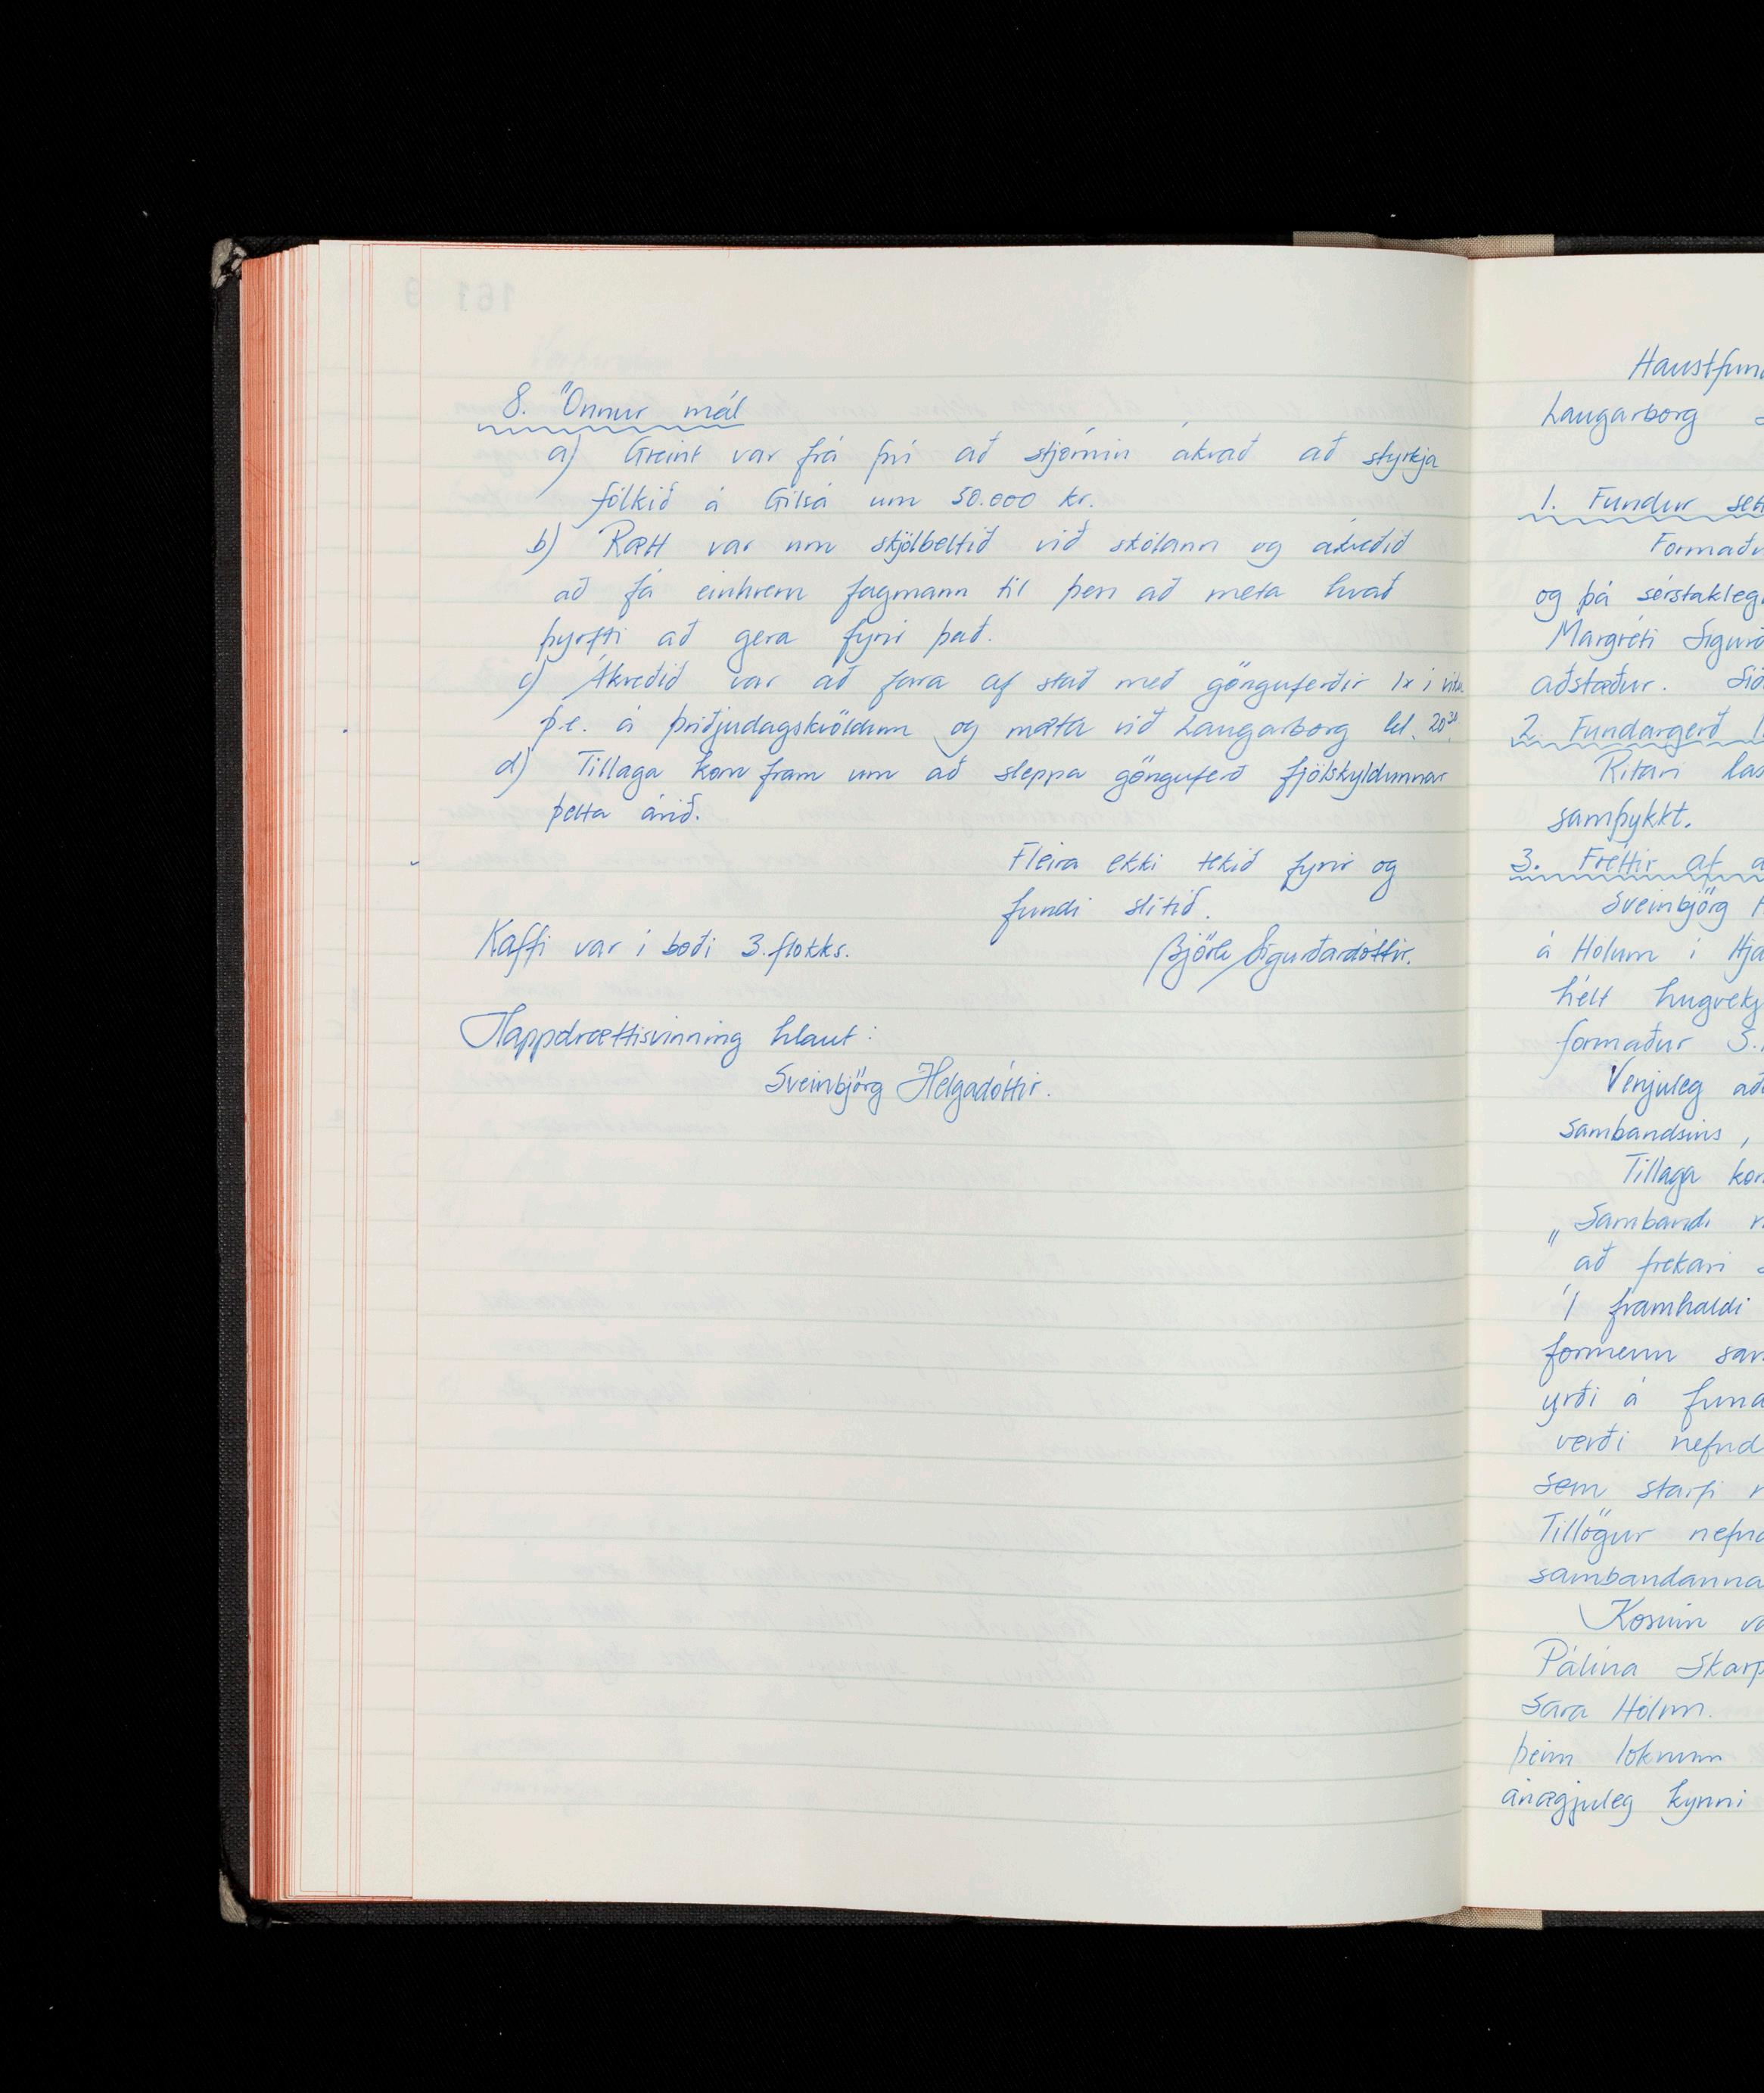 8. Önnur mál
a) Greint var frá því að stjórnin ákvað að styrkja
fólkið á Gilsá um 50.000 kr.
b) Rætt var um skjólbeltið við skólann og ákveðið
að fá einhvern fagmann til þess að meta hvað
þyrfti að gera fyrir það.
c) Ákveðið var að fara af stað með gönguferðir 1x í viku
þ.e. á þriðjudagskvöldum og mæta við Laugarborg kl. 20³⁰.
d) Tillaga kom fram um að sleppa gönguferð fjölskyldunnar
þetta árið.
Fleira ekki tekið fyrir og
fundi slitið.
Kaffi var í boði 3. flokks.
Björk Sigurðardóttir.
Happdrættisvinning hlaut:
Sveinbjörg Helgadóttir.
Haustfun
Laugarborg
1. Fundur set
Formaðu
og þá sérstakleg
Margréti Sigurð
aðstæður. Síð
2. Fundargerð l
Ritari las
samþykkt.
3. Fréttir af a
Sveinbjörg H
á Hólum í Hja
hélt hugvekj
formaður S.
Venjuleg að
sambandsins,
Tillaga kom
„Sambandi
að frekari s
Í framhaldi
formenn sam
yrði á funda
verði nefnd
sem starfi
Tillögur nefnd
sambandanna
Kosnin va
Pálína Skarp
Sara Hólm.
þeim loknum
ánægjuleg kynni